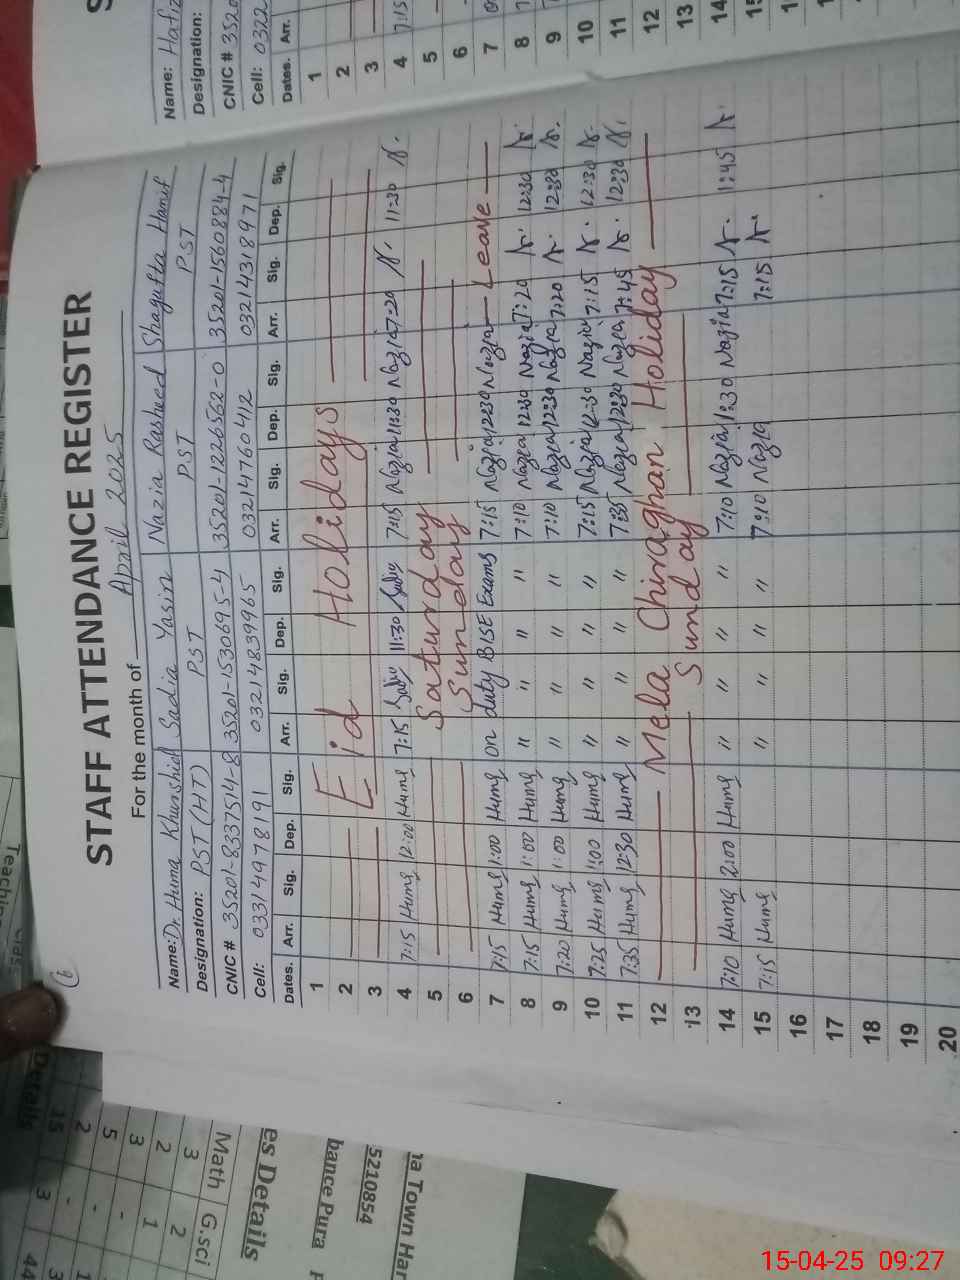 STAFF ATTENDANCE REGISTER
For the month of April 2025
Name: Dr. Huma Khurshid Sadia Yasin Nazia Rasheed Shagufta Hanif
Designation: PST (HT) PST PST PST
CNIC # 35201-8337514-8 35201-1530695-4 35201-1226562-0 35201-1560884-4
Cell: 03314978191 03214839965 03214760412 03214318971
Dates. Arr. Sig. Dep. Sig. Arr. Sig. Dep. Sig. Arr. Sig. Dep. Sig. Arr. Sig. Dep. Sig.
1
2 Eid Holidays
3
4 7:15 Huma 12:00 Huma 7:15 Sadia 11:30 Sadia 7:15 Nazia 11:30 Nazia 7:20 11:30
5 Saturday
6 Sunday
7 7:15 Huma 1:00 Huma on duty BISE Exams 7:15 Nazia 12:30 Nazia Leave
8 7:15 Huma 1:00 Huma " " " " 7:10 Nazia 12:30 Nazia 7:20 12:30
9 7:20 Huma 1:00 Huma " " " " 7:10 Nazia 12:30 Nazia 7:20 12:30
10 7:25 Huma 1:00 Huma " " " " 7:15 Nazia 12:30 Nazia 7:15 12:30
11 7:35 Huma 12:30 Huma " " " " 7:35 Nazia 12:30 Nazia 7:45 12:30
12 Mela Chiraghan Holiday
13 Sunday
14 7:10 Huma 2:00 Huma " " " " 7:10 Nazia 1:30 Nazia 7:15 1:45
15 7:15 Huma " " " " 7:10 Nazia 7:15
16
17
18
19
20
Name: Hafiz
Designation:
CNIC # 3520
Cell: 0322
Dates. Arr.
1
2
3
4 7:15
5
6
7
8
9
10
11
12
13
14
15
Details
15 3 44
2 -
5 -
3 1
2 2
3
Math G.sci
es Details
bance Pura
5210854
na Town Har
15-04-25 09:27